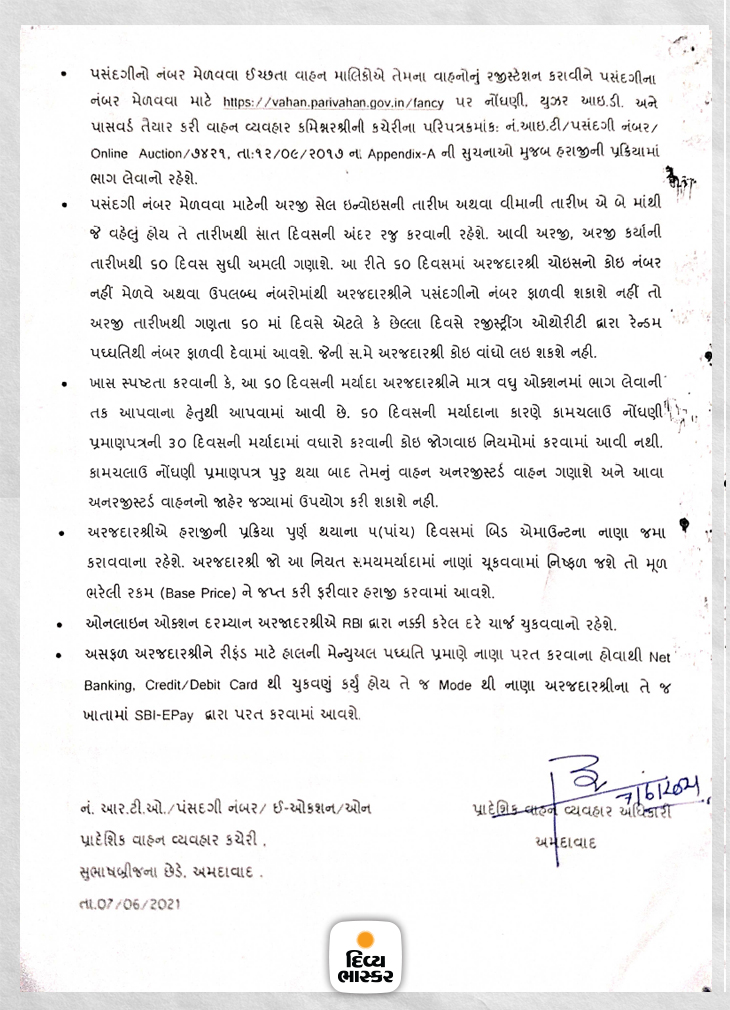 • પસંદગીનો નંબર મેળવવા ઈચ્છતા વાહન માલિકોએ તેમના વાહનોનું રજીસ્ટેશન કરાવીને પસંદગીના
નંબર મેળવવા માટે https://vahan.parivahan.gov.in/fancy પર નોંધણી, યુઝર આઇ.ડી. અને
પાસવર્ડ તૈયાર કરી વાહન વ્યવહાર કમિશ્નરશ્રીની કચેરીના પરિપત્રકમાંક: નં.આઇ.ટી/પસંદગી નંબર/
Online Auction/૭૪૨૧, તા:૧૨/૦૯/૨૦૧૭ ના Appendix-A ની સુચનાઓ મુજબ હરાજીની પ્રક્રિયામાં
ભાગ લેવાનો રહેશે.
• પસંદગી નંબર મેળવવા માટેની અરજી સેલ ઇન્વોઇસની તારીખ અથવા વીમાની તારીખ એ બે માંથી
જે વહેલું હોય તે તારીખથી સાત દિવસની અંદર રજુ કરવાની રહેશે. આવી અરજી, અરજી કર્યાની
તારીખથી ૬૦ દિવસ સુધી અમલી ગણાશે. આ રીતે ૬૦ દિવસમાં અરજદારશ્રી ચોઇસનો કોઇ નંબર
નહીં મેળવે અથવા ઉપલબ્ધ નંબરોમાંથી અરજદારશ્રીને પસંદગીનો નંબર ફાળવી શકાશે નહીં તો
અરજી તારીખથી ગણતા ૬૦ માં દિવસે એટલે કે છેલ્લા દિવસે રજીસ્ટ્રીંગ ઓથોરીટી દ્વારા રેન્ડમ
પધ્ધતિથી નંબર ફાળવી દેવામાં આવશે. જેની સામે અરજદારશ્રી કોઇ વાંધો લઇ શકશે નહી.
• ખાસ સ્પષ્ટતા કરવાની કે, આ ૬૦ દિવસની મર્યાદા અરજદારશ્રીને માત્ર વધુ ઓક્શનમાં ભાગ લેવાની
તક આપવાના હેતુથી આપવામાં આવી છે. ૬૦ દિવસની મર્યાદાના કારણે કામચલાઉ નોંધણી
પ્રમાણપત્રની ૩૦ દિવસની મર્યાદામાં વધારો કરવાની કોઇ જોગવાઇ નિયમોમાં કરવામાં આવી નથી.
કામચલાઉ નોંધણી પ્રમાણપત્ર પુરુ થયા બાદ તેમનું વાહન અનરજીસ્ટર્ડ વાહન ગણાશે અને આવા
અનરજીસ્ટર્ડ વાહનનો જાહેર જગ્યામાં ઉપયોગ કરી શકાશે નહી.
• અરજદારશ્રીએ હરાજીની પ્રક્રિયા પુર્ણ થયાના ૫(પાંચ) દિવસમાં બિડ એમાઉન્ટના નાણા જમા
કરાવવાના રહેશે. અરજદારશ્રી જો આ નિયત સમયમર્યાદામાં નાણાં ચૂકવવામાં નિષ્ફળ જશે તો મૂળ
ભરેલી રકમ (Base Price) ને જપ્ત કરી ફરીવાર હરાજી કરવામાં આવશે.
• ઓનલાઇન ઓક્શન દરમ્યાન અરજાદરશ્રીએ RBI દ્વારા નક્કી કરેલ દરે ચાર્જ ચુકવવાનો રહેશે.
• અસફળ અરજદારશ્રીને રીફંડ માટે હાલની મેન્યુઅલ પધ્ધતિ પ્રમાણે નાણા પરત કરવાના હોવાથી Net
Banking, Credit/Debit Card થી ચુકવણું કર્યું હોય તે જ Mode થી નાણા અરજદારશ્રીના તે જ
ખાતામાં SBI-EPay દ્વારા પરત કરવામાં આવશે.
7/6/2021
નં. આર.ટી.ઓ./પંસદગી નંબર/ ઈ-ઓકશન/ઓન
પ્રાદેશિક વાહન વ્યવહાર અધિકારી
પ્રાદેશિક વાહન વ્યવહાર કચેરી ,
અમદાવાદ
સુભાષબ્રીજના છેડે, અમદાવાદ .
તા.07/06/2021
દિવ્ય
ભાસ્કર